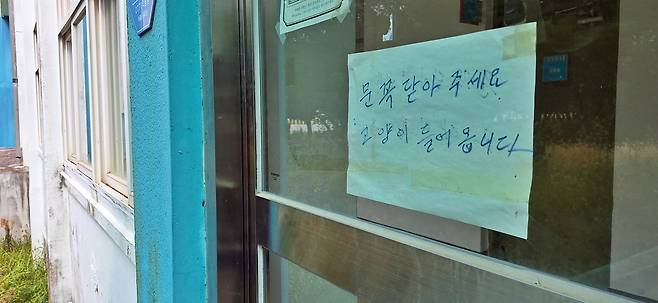 문 꼭 닫아 주세요
고양이 들어 옵니다